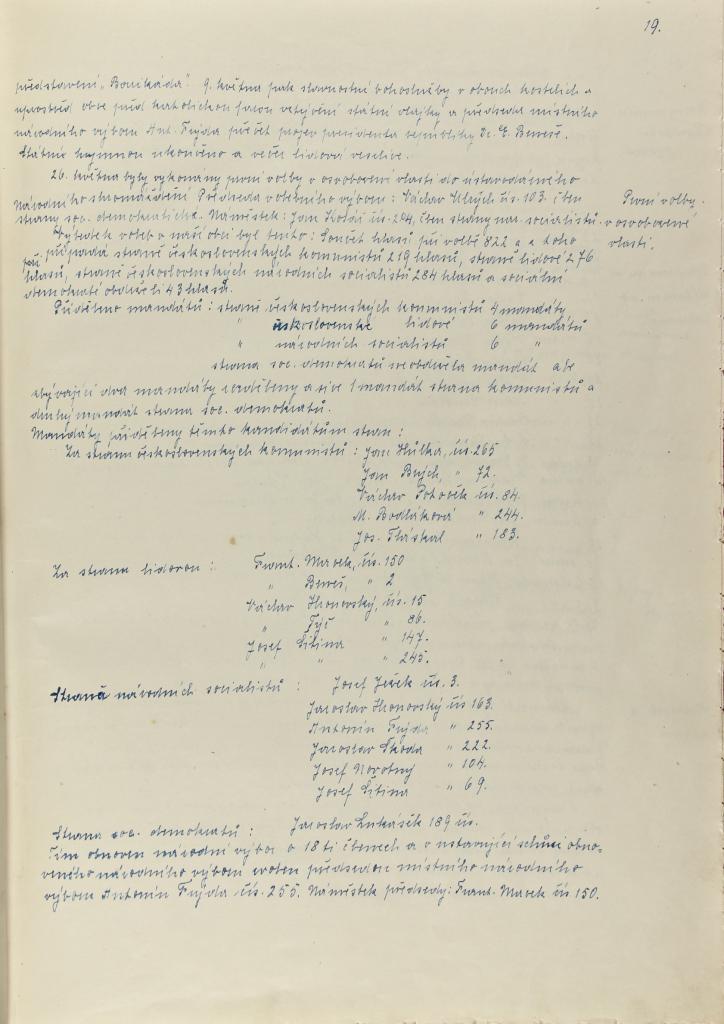 19.
představení „Barikáda". 9. května pak slavnostní bohoslužby v obou kostelích a
uprostřed obce před katolickou farou vztyčení státní vlajky a předseda místního
národního výboru Ant. Fejda přečet projev presidenta republiky Dr. E. Beneše.
Státní hymnou ukončeno a večer lidová veselice.
26. května byly vykonány první volby v osvobozené vlasti do ústavodárného
Národního shromáždění. Předseda volebního výboru: Václav čís. 103. člen
strany soc. demokratické. Náměstek: Jan čís. 204, člen strany nar. socialistů.
První volby
v osvobozené
vlasti.
Výsledek voleb v naší obci byl tento: Součet hlasů při volbě 822 a z toho
připadá straně československých komunistů 219 hlasů, straně lidové 276
hlasů, straně československých národních socialistů 284 hlasů a sociální
demokraté obdrželi 43 hlasů.
Přiděleno mandátů: straně československých komunistů 4 mandáty
" československé lidové 6 mandátů
" národních socialistů 6 "
strana soc. demokratů neobdržela mandát ale
zbývající dva mandáty rozděleny a sice 1 mandát strana komunistů a
druhý mandát strana soc. demokratů.
Mandáty přiděleny těmto kandidátům stran:
Za stranu československých komunistů: Jan Hůlka, čís. 265
Jan " 72.
Václav Potoček čís. 84.
M. Bodláková " 244.
Jos. " 183.
Za stranu lidovou: Frant. Marek, čís. 150
" Beneš, " 2
Václav čís. 15
" " 86.
Josef Sitina " 147.
" " " 245.
Strana národních socialistů: Josef Ježek čís. 3.
Jaroslav čís 163.
Antonín Fejda " 255.
Jaroslav Škoda " 222.
Josef Novotný " 104.
Josef Sitina " 69.
Strana soc. demokratů: Jaroslav Lukášek 189 čís.
Tím obnoven národní výbor o 18ti členech a v ustavující schůzi obno-
veného národního výboru zvolen předsedou místního národního
výboru Antonín Fejda čís. 255. Náměstek předsedy: Frant. Marek čís 150.